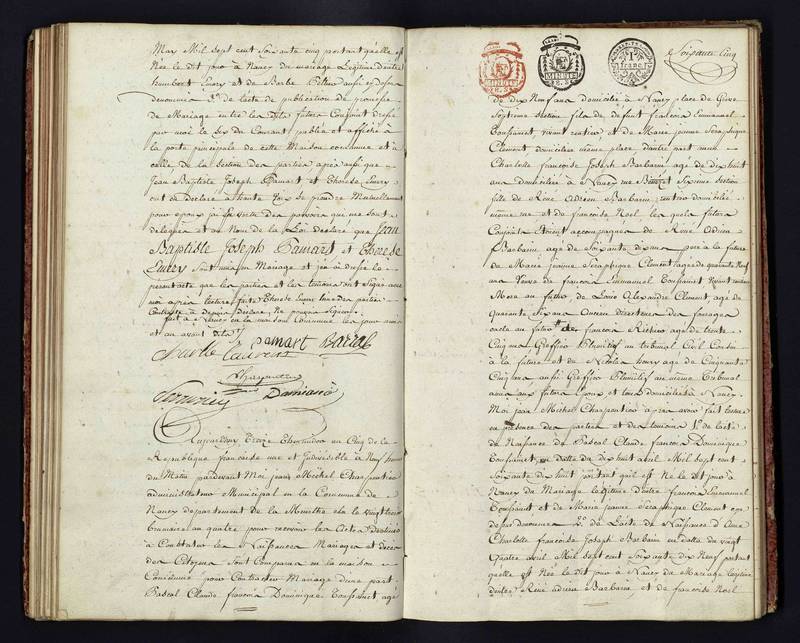 Mars Mil Sept cent Soixante cinq portant qu'elle est
Née le dit jour à Nancy du mariage Légitime d'entre
humbert Emry et de Barbe aussi
denommée 3° de l'acte de publication de promesse
de Mariage entre les dits futurs Conjoint dressé
par moi le Six du Courant publié et affiché à
la porte principale de cette Maison commune et à
celle de la Section des parties après aussi que
Jean Baptiste Joseph Pamart et Therese Emry
ont eu déclaré à haute voix se prendre Mutuellement
pour epoux j'ai en vertu des pouvoirs qui me sont
delegués et au Nom de la Loi declaré que Jean
Baptiste Joseph Pamart et Therese
Emry Sont unis en Mariage et j'en ai dressé le
present acte que les parties et les temoins ont Signé avec
moi après lecture faite Therese Emry l'une des parties
declaré ne pouvoir Signer
fait à Nancy en la maison Commune les jour mois
et an avant dits
Charlle Laurent Pamart Barral
Charpentier
Damiano
Aujourd'huy Treize Thermidor an Cinq de la
Republique francoise une et Indivisible à Neuf heures
du Matin pardevant Moi jean Michel Charpentier
administrateur Municipal en la Commune de
Nancy departement de la Meurthe elu le vingt trois
brumaire an quatre pour recevoir les Actes destinés
à Constater les Naissances Mariages et deces
des Citoyens Sont Comparus en la maison
Commune pour Contracter Mariage d'une part
Pascal Claude françois Dominique Toussaint agé
Soixante Cinq
de dix Neuf ans domicilié à Nancy place de Greve
Septieme Section fils de defunt françois Emmanuel
Toussaint vivant rentier et de Marie jeanne Seraphique
Clement domiciliée même place d'autre part
Charlotte françoise Joseph Barbarin agé de dix huit
ans domiciliée à Nancy rue Sixieme Section
fille de René Adrien Barbarin rentier domiciliés
même rue et de françoise Noel les quels futurs
Conjoints Etoient accompagnés de René Adrien
Barbarin agé de Soixante dix ans pere à la future
de Marie jeanne Seraphique Clement agée de quarante Neuf
ans Veuve de françois Emmanuel Toussaint vivant rentier
Mere au futur de Louis Alexandre Clement agé de
Quarante Six ans Ancien directeur des fourages
oncle au futur de françois Richier agé de trente
Cinq ans Greffier au tribunal Civil Cousin
à la future et de Nicolas henry agé de Cinquante
Cinq ans aussi Greffier au même Tribunal
amis aux futurs epoux et tous domiciliés à Nancy
Moi jean Michel Charpentier après avoir fait lecture
en presence des parties et des temoins 1° de l'acte
de Naissance de Pascal Claude françois Dominique
Toussaint en datte du dix huit avril Mil Sept cent
Soixante dix huit portant qu'il est Né le dit jour à
Nancy du Mariage légitime d'entre françois Emmanuel
Toussaint et de Marie jeanne Seraphique Clement cy
dessus denommés 2° de l'acte de Naissance d'Anne
Charlotte françoise Joseph Barbarin en datte du vingt
Quatre avril Mil Sept cent Soixante dix Neuf portant
qu'elle est Née le dit jour à Nancy du Mariage legitime
d'entre René adrien Barbarin et de françoise Noel